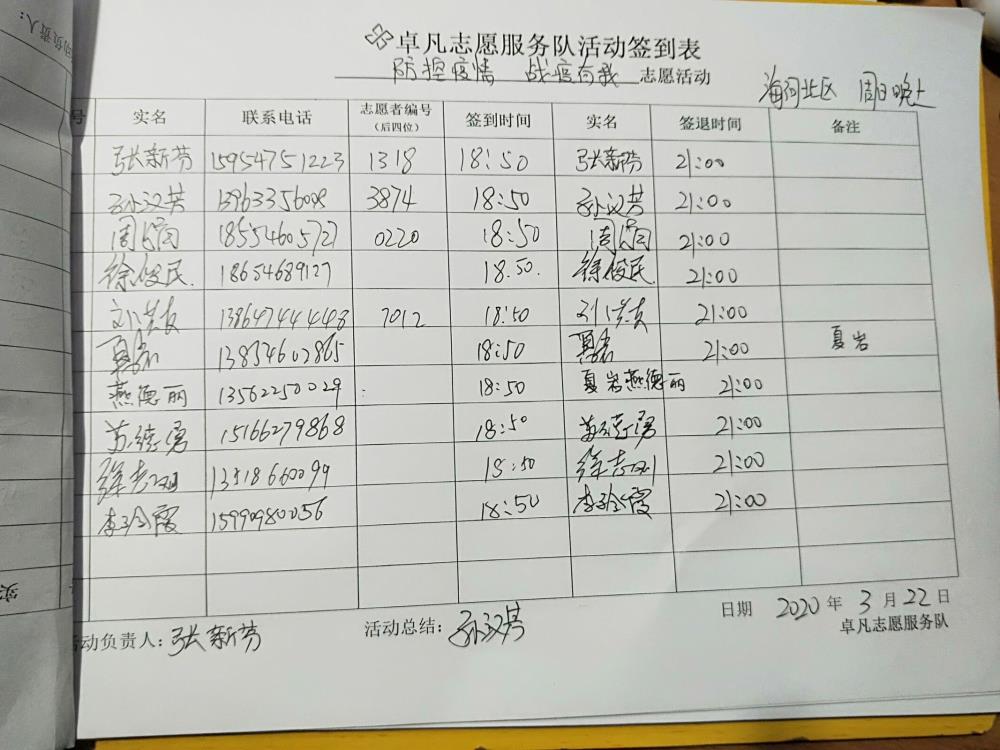 卓凡志愿服务队活动签到表
防控疫情 战疫有我 志愿活动
海河北区 周日晚上
号 实名 联系电话 志愿者编号（后四位） 签到时间 实名 签退时间 备注
张新芬 15954751223 1318 18:50 张新芬 21:00
孙汉芸 13963356008 3874 18:50 孙汉芸 21:00
周 18554605727 0220 18:50 周 21:00
徐俊民 18654689127 18.50. 徐俊民 21:00
刘洪友 13864744448 7012 18:50 刘洪友 21:00
夏岩 13854602865 18:50 夏岩 21:00 夏岩
燕德丽 13562250029 18:50 夏岩燕德丽 21:00
苏德勇 15166279868 18:50 苏德勇 21:00
徐志刚 13518660099 18:50 徐志刚 21:00
李玲霞 15990980056 18:50 李玲霞 21:00
日期 2020 年 3 月 22 日
活动负责人：张新芬 活动总结：孙汉芸
卓凡志愿服务队